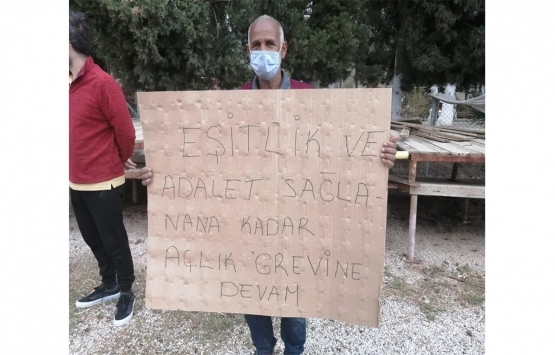 EŞİTLİK VE
ADALET SAĞLA-
NANA KADAR
AÇLIK GREVİNE
DEVAM